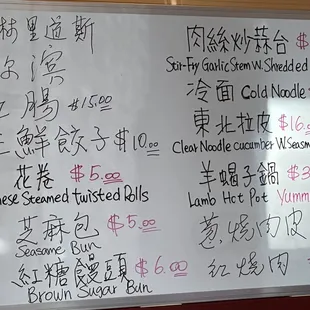 林里道斯
尔濱
紅腸 $15.00
三鮮餃子 $10.00
花卷 $5.00
nese Steamed Twisted Rolls
芝麻包 $5.00
Seasame Bun
紅糖饅頭 $6.00
Brown Sugar Bun
肉絲炒蒜台 $
Stir-Fry Garlic Stem W. Shredded
冷面 Cold Noodle
東北拉皮 $16.
Clear Noodle cucumber W. Seasm
羊蝎子鍋 $3
Lamb Hot Pot Yumm
蔥燒肉皮
紅燒肉